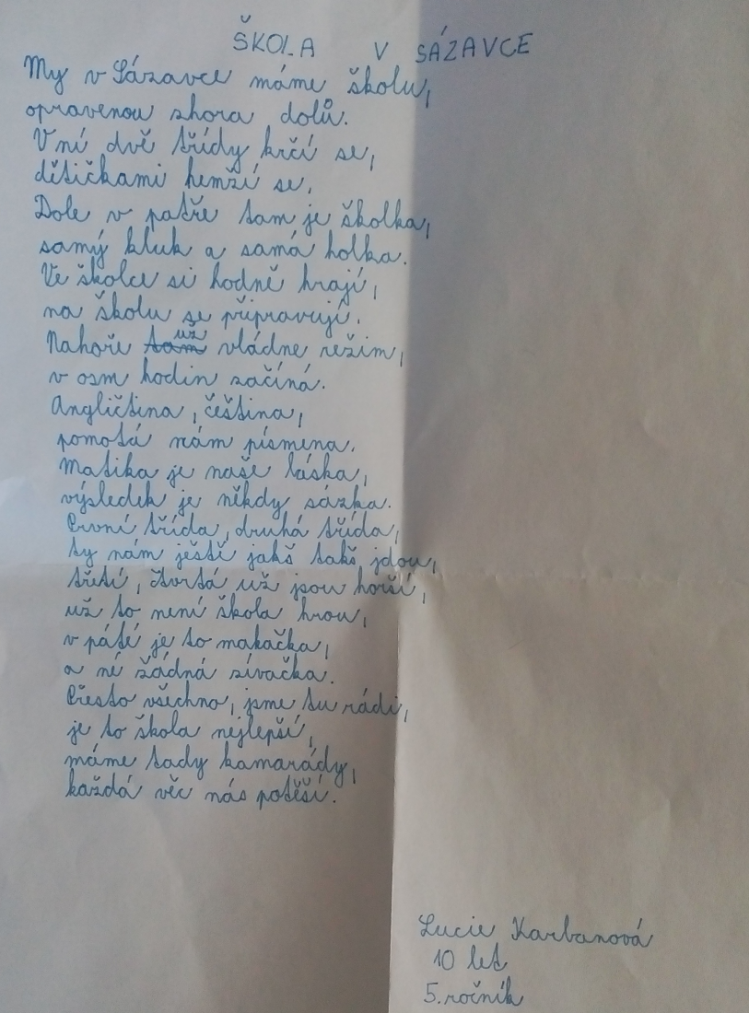 ŠKOLA V SÁZAVCE
My v Sázavce máme školu,
opravenou shora dolů.
V ní dvě třídy krčí se,
dětičkami hemží se.
Dole v patře tam je školka,
samý kluk a samá holka.
Ve školce si hodně hrají,
na školu se připravují.
Nahoře tam už vládne režim,
v osm hodin začíná.
Angličtina, čeština,
pomotá nám písmena.
Matika je naše láska,
výsledek je někdy sázka.
První třída, druhá třída,
ty nám ještě jakš takš jdou,
třetí, čtvrtá už jsou horší,
už to není škola hrou,
v páté je to makačka,
a né žádná zívačka.
Přesto všechno, jsme tu rádi,
je to škola nejlepší,
máme tady kamarády,
každá věc nás potěší.
Lucie Karbanová
10 let
5. ročník